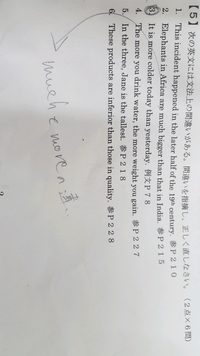 【5】次の英文には文法上の間違いがある。間違いを指摘し、正しく直しなさい。（2点×6問）
1. This incident happened in the later half of the 19th century. 参P210
2. Elephants in Africa are much bigger than that in India. 参P215
3. It is more colder today than yesterday. 例文P78
4. The more you drink water, the more weight you gain. 参P227
5. In the three, Jane is the tallest. 参P218
6. These products are inferior than those in quality. 参P228
muchとmoreの違い